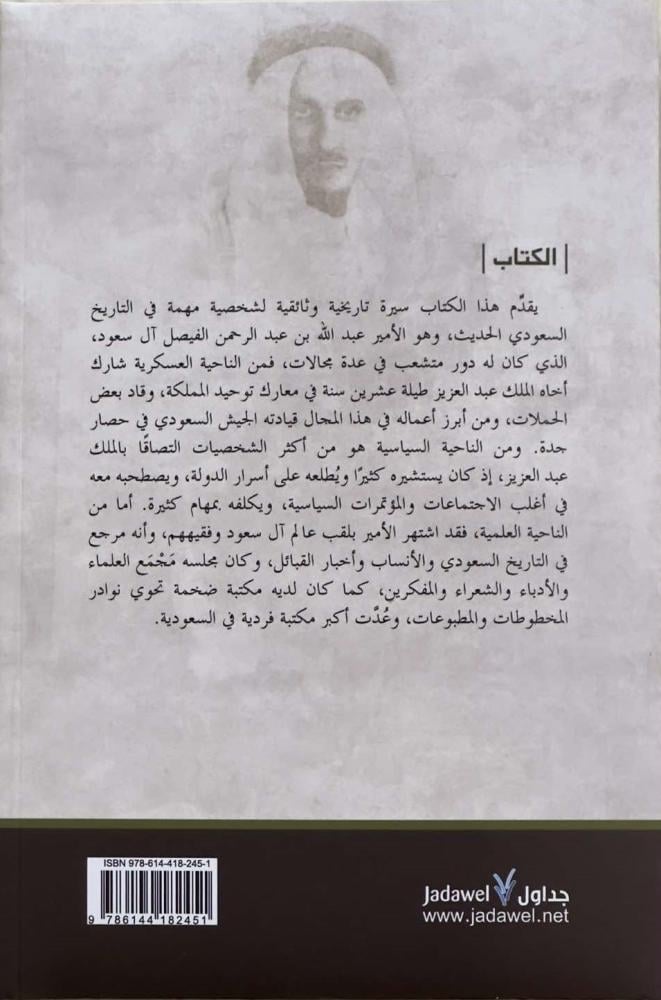 | الكتاب |
يقدِّم هذا الكتاب سيرة تاريخية وثائقية لشخصية مهمة في التاريخ
السعودي الحديث، وهو الأمير عبد الله بن عبد الرحمن الفيصل آل سعود،
الذي كان له دور متشعب في عدة مجالات، فمن الناحية العسكرية شارك
أخاه الملك عبد العزيز طيلة عشرين سنة في معارك توحيد المملكة، وقاد بعض
الحملات، ومن أبرز أعماله في هذا المجال قيادته الجيش السعودي في حصار
جدة. ومن الناحية السياسية هو من أكثر الشخصيات التصاقًا بالملك
عبد العزيز، إذ كان يستشيره كثيرًا ويُطلعه على أسرار الدولة، ويصطحبه معه
في أغلب الاجتماعات والمؤتمرات السياسية، ويكلفه بمهام كثيرة. أما من
الناحية العلمية، فقد اشتهر الأمير بلقب عالم آل سعود وفقيههم، وأنه مرجع
في التاريخ السعودي والأنساب وأخبار القبائل، وكان مجلسه مَجْمَع العلماء
والأدباء والشعراء والمفكرين، كما كان لديه مكتبة ضخمة تحوي نوادر
المخطوطات والمطبوعات، وعُدَّت أكبر مكتبة فردية في السعودية.
ISBN 978-614-418-245-1
9 786144 182451
Jadawel جداول
www.jadawel.net